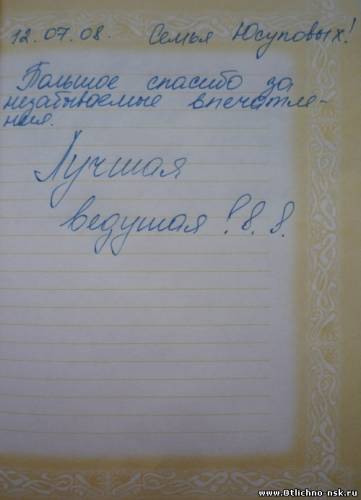 12.07.08. Семья Юсуповых!
Большое спасибо за
незабываемые впечатле-
ния.
Лучшая
ведущая!8.8.
www.Otlichno-nsk.ru